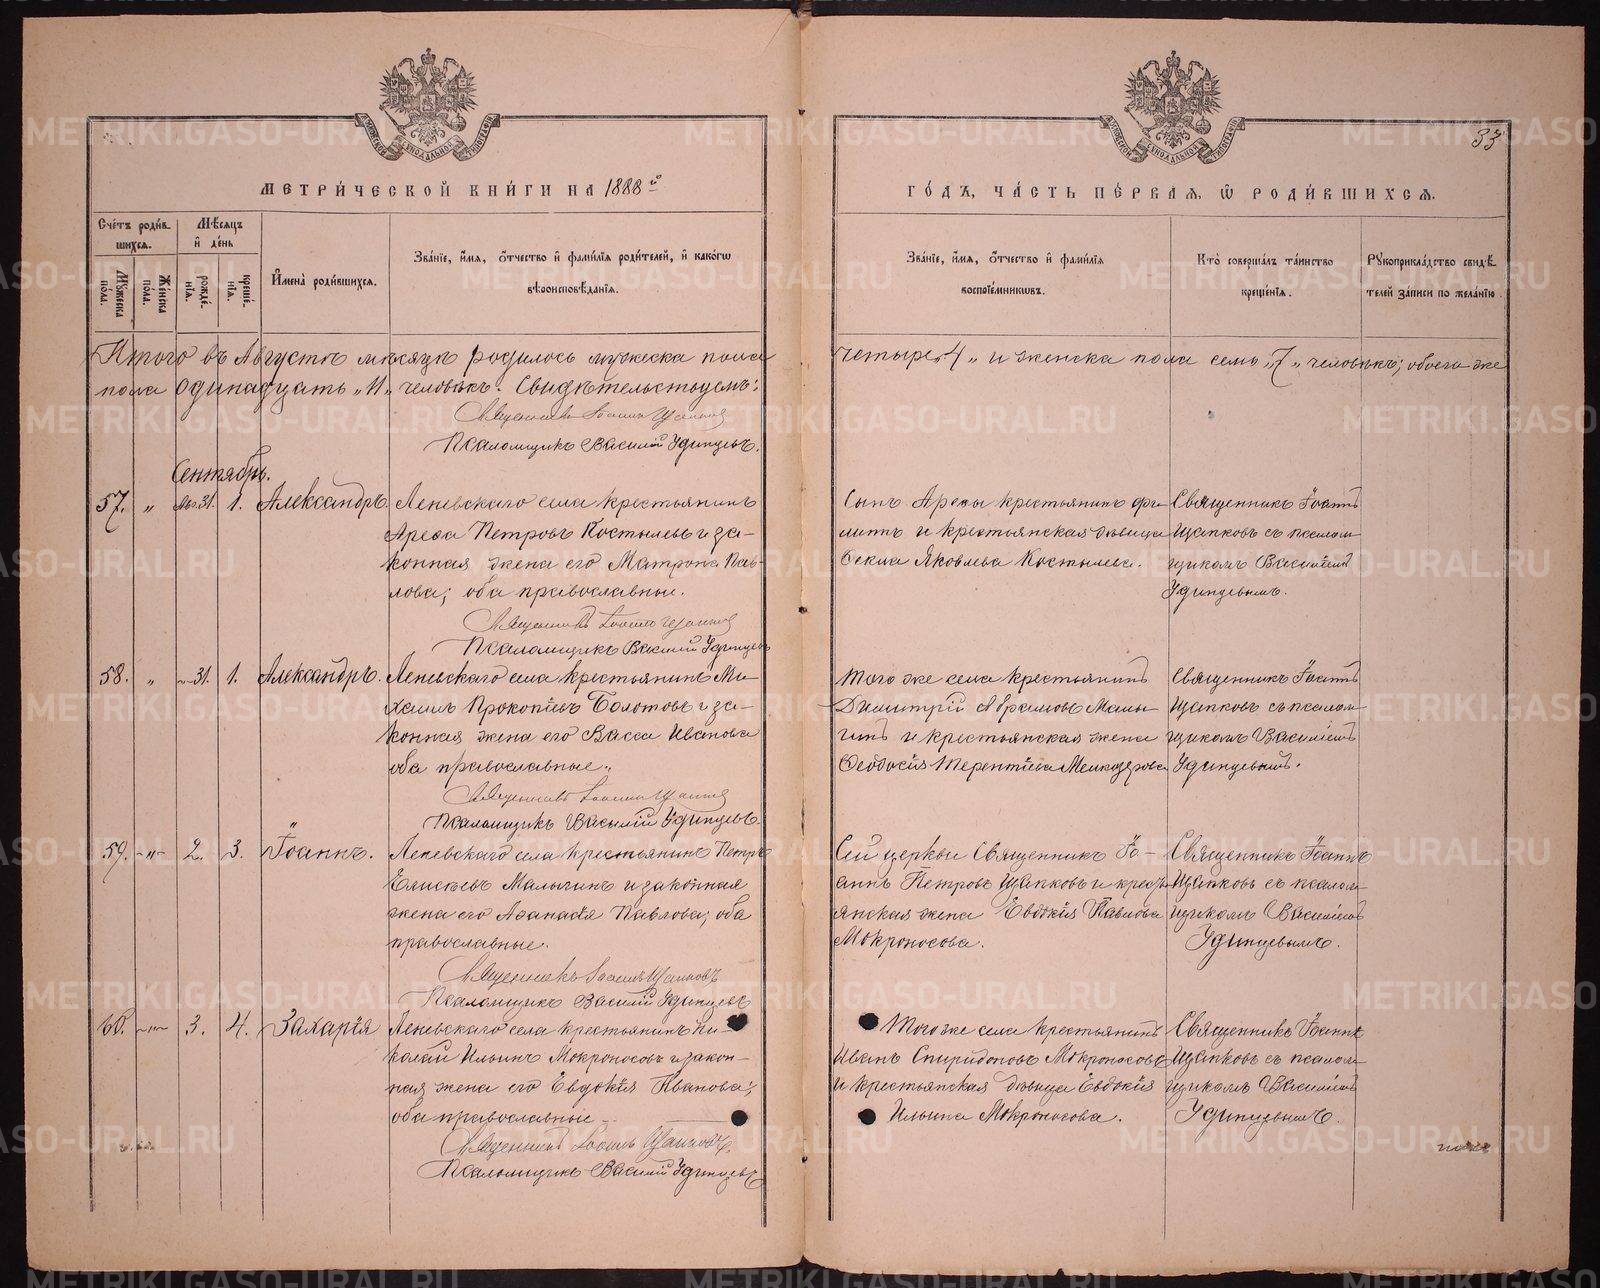 МЕТРИ́ЧЕСКОЙ КНИ́ГИ НА 1888й
ГО́ДЪ, ЧА́СТЬ ПЕ́РВАЯ, Ѡ РОДИ́ВШИХСЯ.
33
Сче́тъ роди́в
шихся.
Мѣ́сяцъ
и҆ де́нь
Му́жеска
по́ла.
Же́нска
по́ла.
рожде́
нїя.
креще́
нїя.
И҆мена̀ роди́вшихся.
Зва́нїе, и҆́мя, ѻ҆́тчество и҆ фами́лїя роди́телей, и҆ како́гѡ
вѣроисповѣ́данїя.
Зва́нїе, и҆́мя, ѻ҆́тчество и҆ фами́лїя
воспрїе́мникѡвъ.
Кто̀ соверша́лъ та́инство
креще́нїя.
Рꙋкоприкла́дство свидѣ́
телей за́писи по жела́нїю.
Итого въ Августѣ мѣсяцѣ родилось мужеска пола четыре „4„ и женска пола семь „7„ человѣкъ; обоего же
пола одинадцать „11„ человѣкъ. Свидѣтельствуемъ:
Священникъ Іоаннъ Щапковъ
Псаломщикъ Василій Удинцевъ.
Сентябрь.
57. „ Авг. 31. 1. Александръ. Леневскаго села крестьянинъ
Арефа Петровъ Костылевъ и за-
конная жена его Матрона Пав-
лова; оба православные.
Священникъ Іоаннъ Щапковъ
Псаломщикъ Василій Удинцевъ
Сынъ Арефы крестьянинъ Фи-
липпъ и крестьянская дѣвица
Ѳекла Яковлева Костылева.
Священникъ Іоаннъ
Щапковъ съ псалом-
щикомъ Василіемъ
Удинцевымъ.
58. „ 31. 1. Александръ. Леневскаго села крестьянинъ Ми-
хаилъ Прокопіевъ Болотовъ и за-
конная жена его Васса Иванова
оба православные.
Священникъ Іоаннъ Щапковъ
Псаломщикъ Василій Удинцевъ
Того же села крестьянинъ
Димитрій Абрамовъ Малы-
гинъ и крестьянская жена
Ѳеодосія Терентіева Мелкозерова
Священникъ Іоаннъ
Щапковъ съ псалом-
щикомъ Василіемъ
Удинцевымъ.
59. „ 2. 3. Іоаннъ. Леневскаго села крестьянинъ Петръ
Елисѣевъ Малыгинъ и законная
жена его Аѳанасія Павлова; оба
православные.
Священникъ Іоаннъ Щапковъ
Псаломщикъ Василій Удинцевъ
Сей церкви Священникъ Іо-
аннъ Петровъ Щапковъ и кресть-
янская жена Евдокія Павлова
Мокроносова.
Священникъ Іоаннъ
Щапковъ съ псалом-
щикомъ Василіемъ
Удинцевымъ.
60. „ 3. 4. Захарія Леневскаго села крестьянинъ Ни-
колай Ильинъ Мокроносовъ и закон-
ная жена его Евдокія Иванова;
оба православные
Священникъ Іоаннъ Щапковъ.
Псаломщикъ Василій Удинцевъ
Того же села крестьянинъ
Иванъ Спиридоновъ Мокроносовъ
и крестьянская дѣвица Евдокія
Ильина Мокроносова.
Священникъ Іоаннъ
Щапковъ съ псалом-
щикомъ Василіемъ
Удинцевымъ.
METRIKI.GASO-URAL.RU